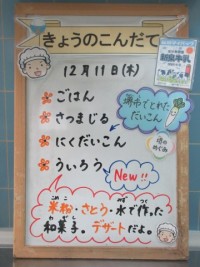 きょうのこんだて
12月11日(木)
ごはん
さつまじる
にくだいこん
ういろう
堺市でとれた
だいこん
堺の
めぐみ
New!!
米粉・さとう・水で作った
和菓子。デザートだよ。